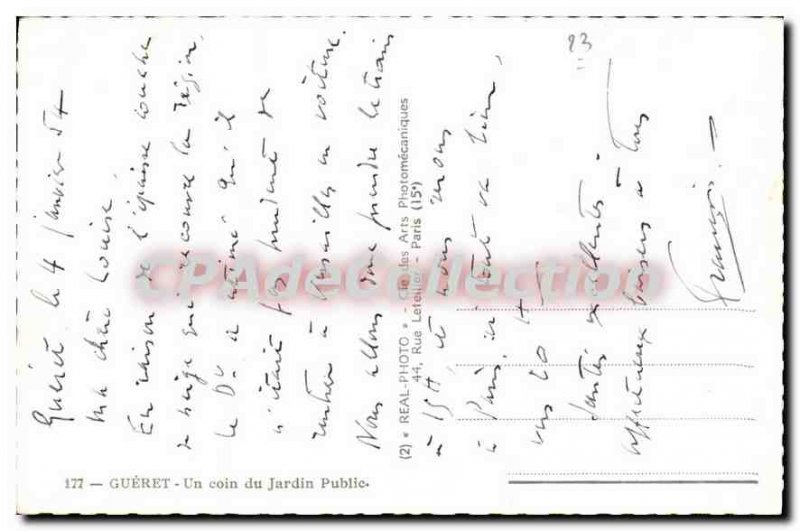 Guéret le 4 janvier 54
Ma chère Louise.
En raison de l'épaisse couche
de neige qui recouvre la région,
le Dr a estimé qu'il
n'était pas prudent de
rentrer à Versailles en voiture.
Nous allons donc prendre le train
à 15H et nous serons
à Paris, si tout va bien,
vers 20 H
Santés excellentes.
Affectueux baisers à tous
François.
23
(2) « REAL-PHOTO » - Cie des Arts Photomécaniques
44, Rue Letellier - Paris (15e)
177 — GUÉRET - Un coin du Jardin Public.
CPAdeCollection